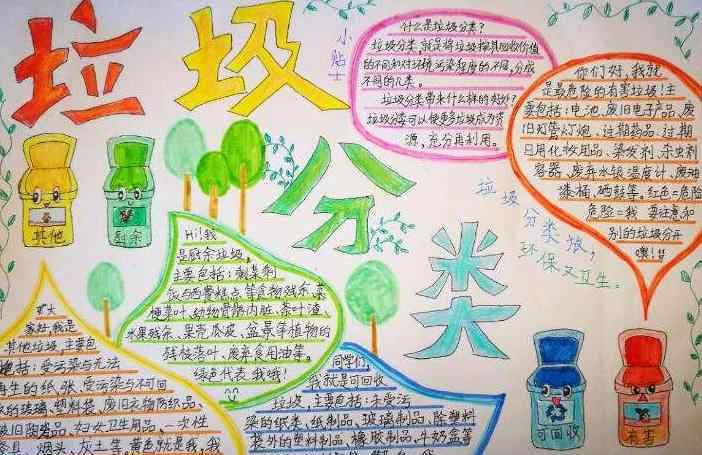 垃圾
分类
小贴士
什么是垃圾分类?
垃圾分类,就是将垃圾按其回收价值
的不同和对环境污染程度的不同,分成
不同的几类。
垃圾分类带来什么样的好处?
垃圾分类可以使更多垃圾成为资
源,充分再利用。
你们好,我就
是最危险的有害垃圾!主
要包括:电池、废旧电子产品、废
旧灯管灯泡、过期药品、过期
日用化妆用品、染发剂、杀虫剂
容器、废弃水银温度计、废油
漆桶、硒鼓等。红色=危险
危险=我 要注意和
别的垃圾分开
噢!!
垃圾
分类好,
环保又卫生。
其他
厨余
Hi!我
是厨余垃圾,
主要包括:剩菜剩
饭与西餐糕点等食物残余、菜
梗菜叶、动物骨骼内脏、茶叶渣、
水果残余、果壳瓜皮、盆景等植物的
残枝落叶、废弃食用油等。
绿色代表我哦!
大
家好,我是
其他垃圾,主要包
括:受污染与无法
再生的纸张、受污染与不可回
的玻璃、塑料袋、废旧衣物防织品、
废旧陶瓷品、妇女卫生用品、一次性
餐具、烟头、灰土等,黄色就是我,我
同学们,
我就是可回收
垃圾,主要包括:未受污
染的纸类、纸制品、玻璃制品、除塑料
袋外的塑料制品、橡胶制品、牛奶盒等
可回收
有害